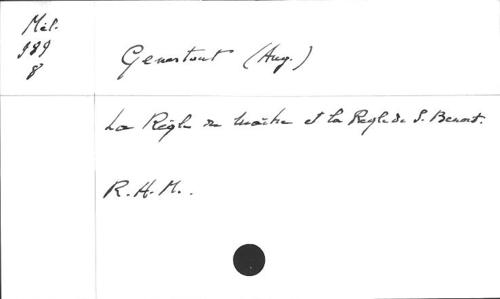 Mél.
989
8
Genestout (Aug.)
La Règle du Maître et la Règle de S. Benoit.
R.H.M.